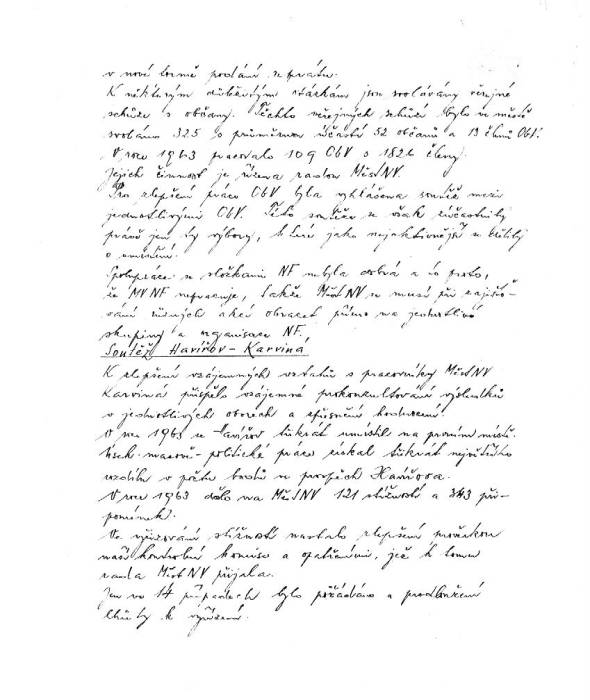 v nové formě podání zprávu.
K některým důležitým otázkám jsou svolávány veřejné
schůze s občany. Těchto veřejných schůzí bylo ve městě
svoláno 325 s průměrnou účastí 52 občanů a 13 členů ObV.
V roce 1963 pracovalo 109 ObV s 1826 členy.
Jejich činnost je řízena radou MěstNV.
Pro zlepšení práce ObV byla vyhlášena soutěž mezi
jednotlivými ObV. Této soutěže se však zúčastnily
právě jen ty výbory, které jako nejaktivnější se cítily
o umístění.
Spolupráce se složkami NF nebyla dobrá a to proto,
že MVNF nepracuje, takže MěstNV se musí při zajišťo-
vání různých akcí obracet přímo na jednotlivé
skupiny a organisace NF.
Soutěž Havířov - Karviná
K zlepšení vzájemných vztahů s pracovníky MěstNV
Karviná přispělo vzájemné prokonzultování výsledků
v jednotlivých oborech a zpřesnění hodnocení.
V roce 1963 se Havířov třikrát umístil na prvním místě.
Úsek masově-politické práce získal třikrát největšího
rozdílu v počtu bodů ve prospěch Havířova.
V roce 1963 došlo na MěstNV 121 stížností a 343 při-
pomínek.
Ve vyřizování stížností nastalo zlepšení
naší kontrolní komise a opatřeními, jež k tomu
rada MěstNV přijala.
Jen ve 14 případech bylo požádáno o prodloužení
lhůty k vyřízení.